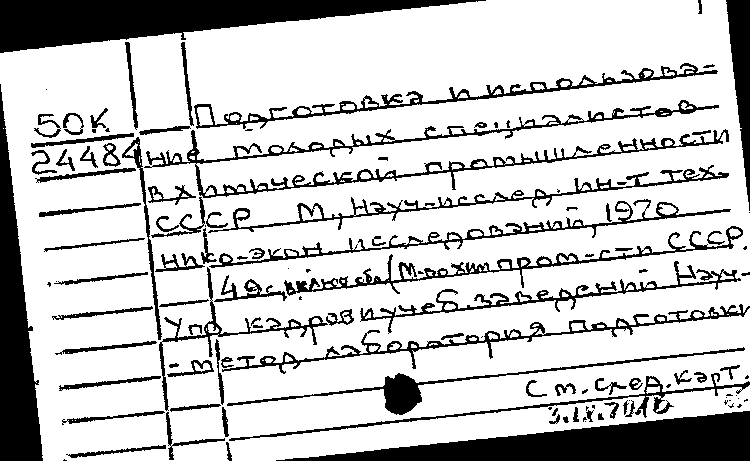 50К Подготовка и использова=
24484 ние молодых специалистов
в химической промышленности
СССР. М., Науч-исслед. ин-т тех.
нико-экон. исследований, 1970
49с, включ. обл. (М-во хим. пром-сти СССР.
Упр. кадров и учеб. заведений. Науч-
-метод. лаборатория подготовки
См. след. карт.
3.IX.2010